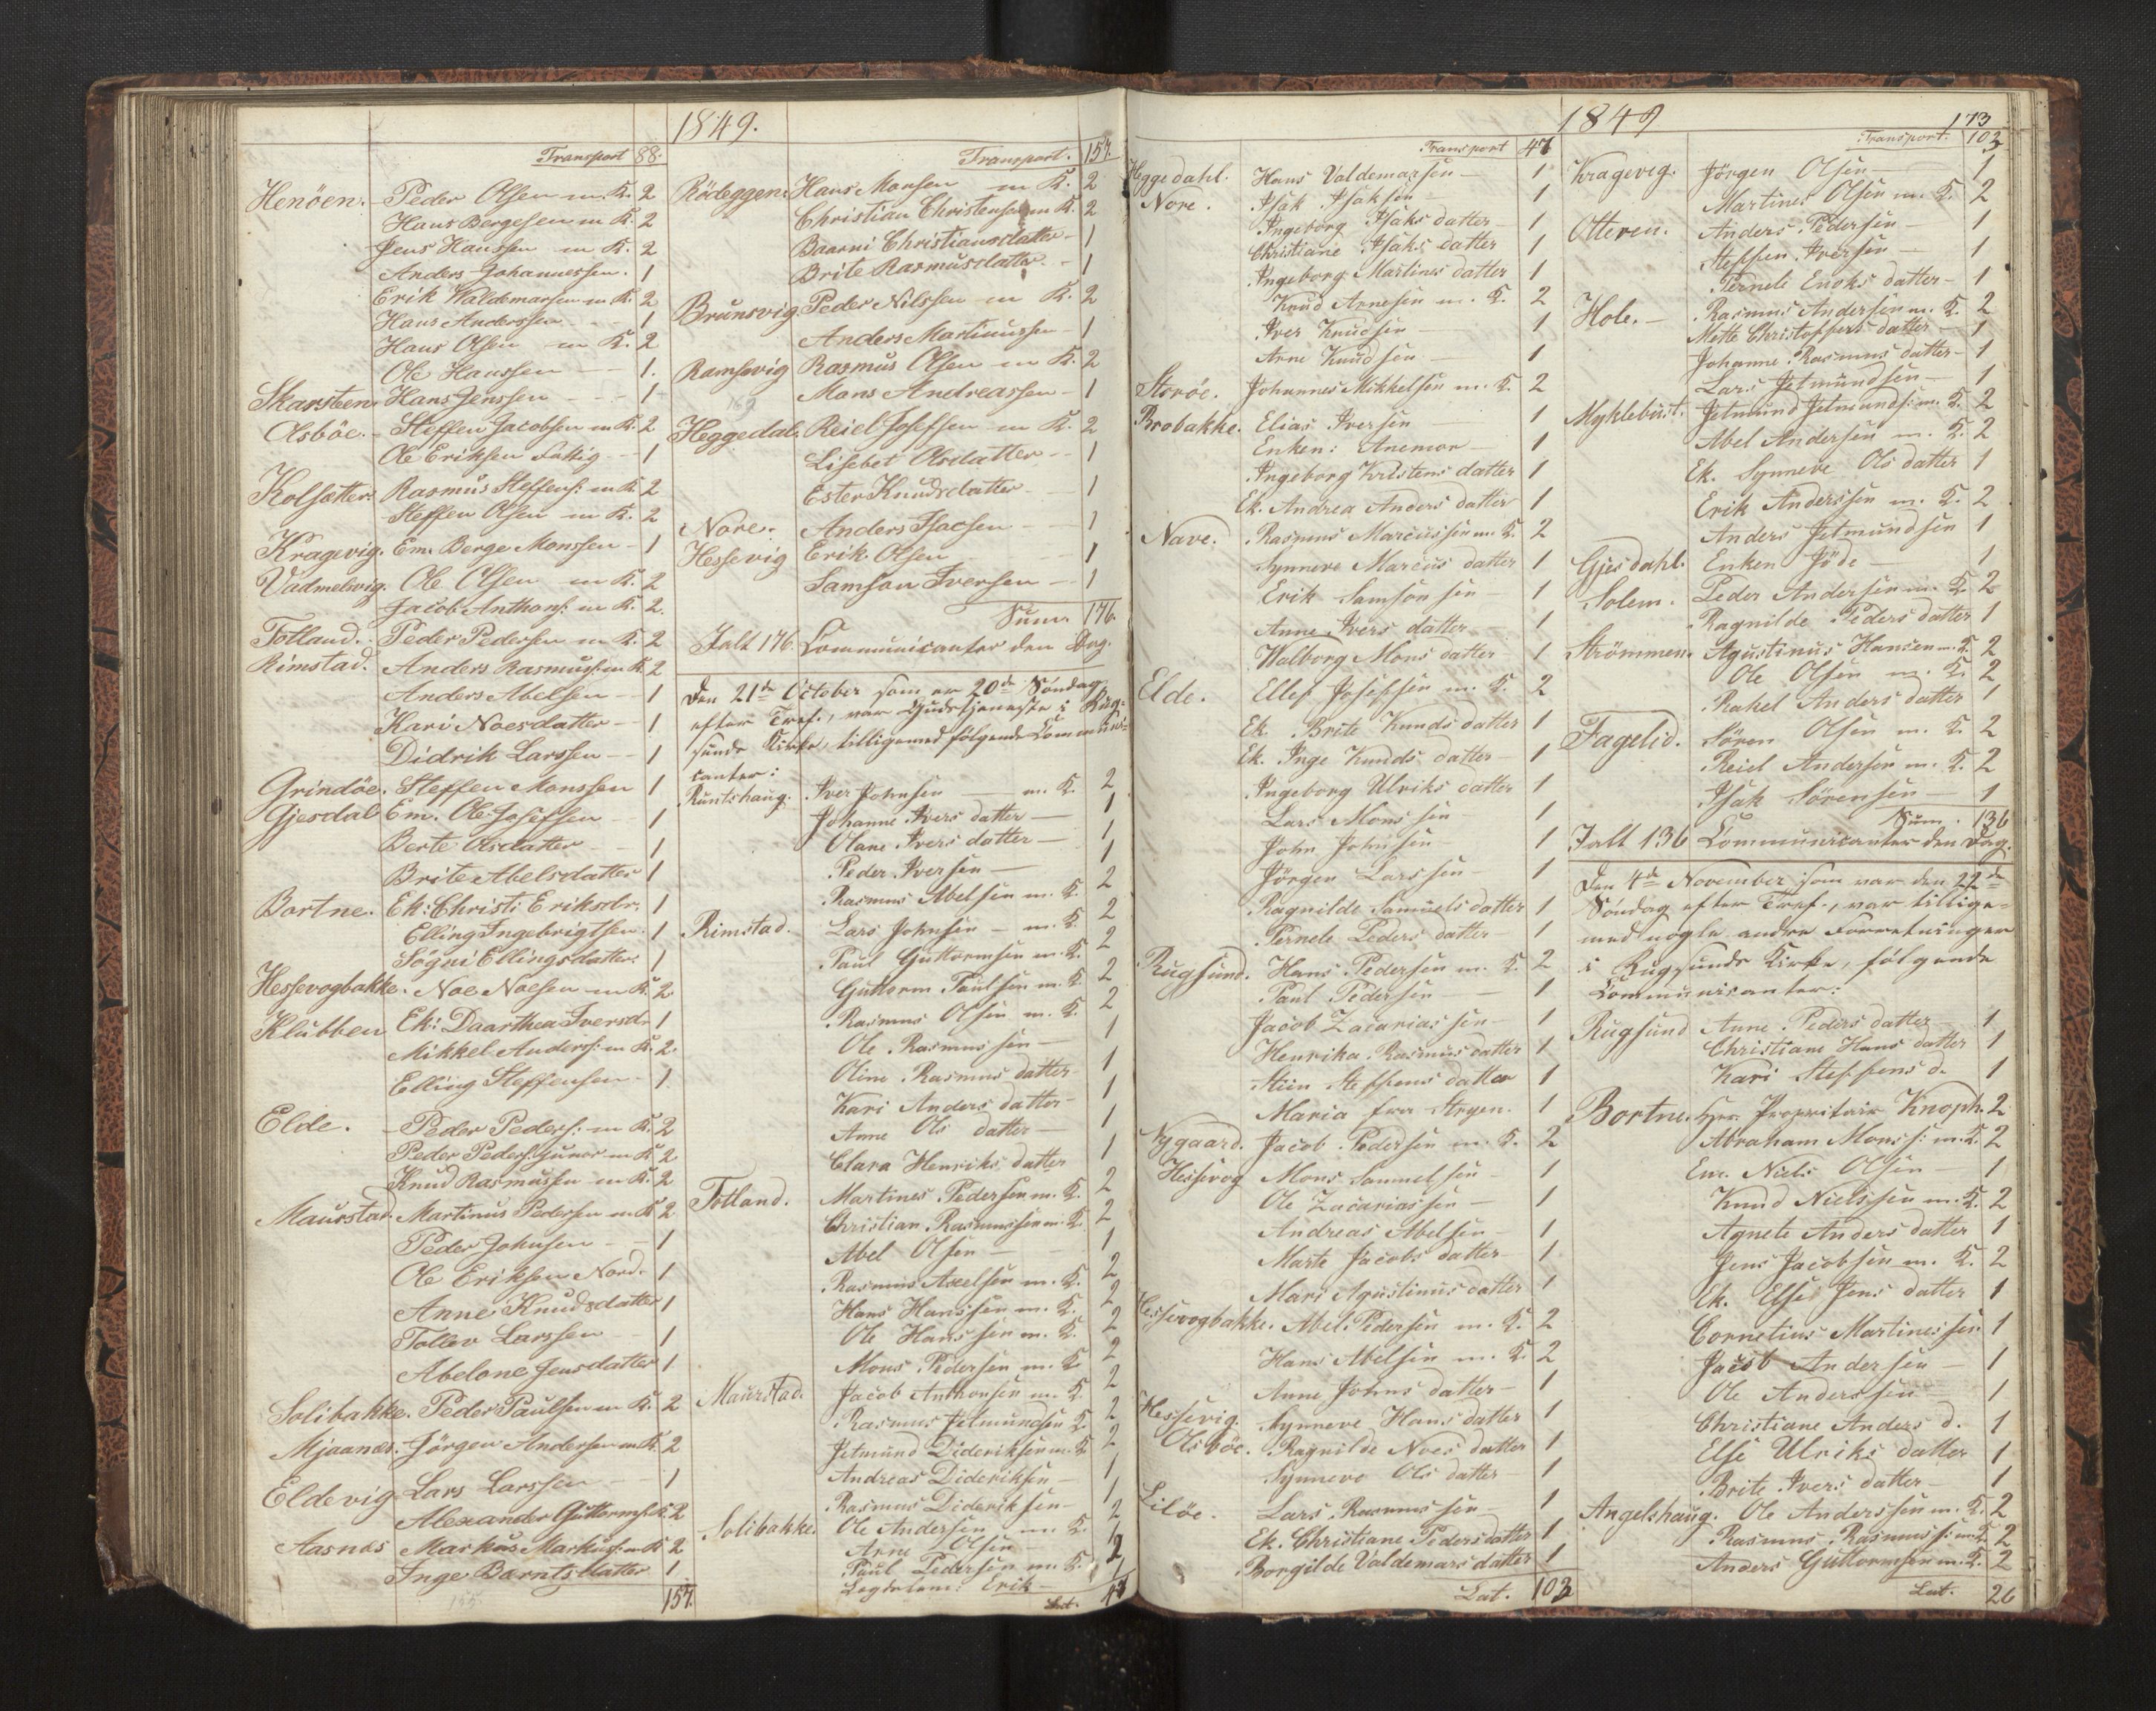 1849.
Transport 88.
Henöen. Peder Olsen m. K. 2
Hans Bergesen m K. 2
Jens Hanssen m K. 2
Anders Johannessen. 1
Erik Waldemarsen m K. 2
Hans Anderssen - - 1
Hans Olsen m K. 2
Ole Hanssen - - 1.
Skarsteen. Hans Jenssen - - 1
Olsböe. Steffen Jacobsen m K. 2
Ole Eriksen Fattig - - 1
Kolsætter. Rasmus Steffens: m K. 2
Steffen Olsen m K. 2
Kragevig. Em. Berge Monssen - 1
Vadmelsvig. Ole Olsen m K. 2
Jacob Anthons: m K. 2.
Totland. Peder Pedersen m K. 2
Rimstad. Anders Rasmuss: m K. 2
Anders Abelsen - - 1
Kari Noesdatter - 1
Didrik Larssen - - 1
Grindöe. Steffen Monssen 1
Gjesdal Em. Ole Josefsen - 1
Berte Olsdatter - - 1
Brite Abelsdatter 1
Bortne. Ek: Christi Eriksdr. 1
Elling Ingebrigtsen. 1
Sögni Ellingsdatter 1
Hessevogbakke. Noe Noesen m K. 2
Klubben Ek: Daarthea Iversdr 1
Mikkel Anderss: m K. 2.
Elling Steffensen - 1
Elde. Peder Peders: m K. 2
Peder Peders: Junior m K 2
Knud Rasmussen m K. 2
Maurstad. Martinus Pedersen m K 2
Peder Johnsen - - 1
Ole Eriksen Nord. 1
Anne Knudsdatter 1
Tollev Larssen - 1
Abelone Jensdatter 1
Solibakke. Peder Paulsen m K. 2
Mjaanæs. Jörgen Andersen m K. 2
Eldevig. Lars Larssen - - 1
Alexander Guttorms: K. 2
Aasnæs Markus Markus: m K 2
Inge Barntsdatter 1
157.
Transport. 157.
Rödeggen. Hans Monsen m K. 2
Christian Christensen m K. 2
Baarni Christiansdatter - 1
Brite Rasmusdatter - 1
Brunsvig. Peder Nilssen m K. 2
Anders Martinussen - 1
Ramsevig Rasmus Olsen m K. 2
Mons Andreassen - 1
Heggedal. Reiel Josefsen m K. 2
Lisebet Olsdatter - - 1
Ester Knudsdatter - 1
Nore. Anders Isacsen - 1
Hessevig Erik Olsen - 1
Samson Iversen - - 1
Sum. 176.
Ialt 176. Communicanter den Dag.
Den 21de October som var 20de Søndag
efter Tref., var Gudstjeneste i Rug-
sunds Kirke, tilligemed følgende Communi-
canter:
Runtshaug. Iver Johnsen — m. K. 2
Johanne Ivers datter — 1
Olane Ivers datter — 1
Peder Iversen — 1
Rasmus Abelsen m. K. 2
Rimstad. Lars Johnsen - m. K. 2
Paul Guttormsen m. K. 2
Guttorm Paulsen m. K. 2
Rasmus Olsen m. K. 2
Ole Rasmussen — 1
Oline Rasmus datter - 1
Kari Anders datter - 1
Anne Ols datter — 1
Clara Henriks datter 1
Totland. Martines Pedersen m. K. 2
Christian Rasmussen m. K. 2
Abel Olsen — 1
Rasmus Axelsen m. K. 2
Hans Hanssen m. K. 2
Ole Hanssen m. K. 2
Mons Pedersen m. K 2
Maurstad. Jacob Anthonsen m. K. 2
Rasmus Jetmundsen K. 2
Jetmund Dideriksen m. K 2
Andreas Dideriksen — 1
Rasmus Dideriksen - 1
Solibakke. Ole Andersen m. K. 2
Arne Olsen - 1
Paul Pedersen m. K. 2
Erik — 1
Lat. 47
1849
173
Transport 47
Heggedahl. Hans Valdemarsen — 1
Nore. Isak Isaksen — 1
Ingeborg Isaks datter - 1
Christiane Isaks datter 1
Ingeborg Martines datter 1
Knud Arnesen m. K. 2
Iver Knudsen — 1
Arne Knudsen — 1
Storöe. Johannes Mikkelsen m. K. 2
Brobakke. Elias Iversen — 1
Enken: Anemor - 1
Ingeborg Kristens datter 1
Ek. Andrea Anders datter 1
Nave. Rasmus Marcussen m. K. 2
Synneve Marcus datter 1
Erik Samsonsen - 1
Anne Ivers datter - 1
Walborg Mons datter 1
Elde. Ellef Josefsen m. K. 2
Ek. Brite Knuds datter 1
Ek. Inge Knuds datter - 1
Ingeborg Ulriks datter 1
Lars Monssen - 1
John Johnsen - 1
Jörgen Larssen - 1
Ragnilde Samuels datter 1
Pernele Peders datter - 1
Rugsund. Hans Pedersen m. K. 2
Paul Pedersen - 1
Jacob Zacariassen - 1
Henrika Rasmus datter 1
Stein Steffens datter 1
Maria fra Stryen. 1
Nygaard. Jacob Pedersen m. K. 2
Hessevog Mons Samuelsen - 1
Ole Zacariassen - 1
Andreas Abelsen - 1
Marte Jacobs datter - 1
Mari Agustinus datter 1
Hessevogbakke. Abel Pedersen m. K. 2
Hans Abelsen m. K. 2
Anne Johns datter - 1
Hessevig. Synneve Hans datter 1
Olsböe. Ragnilde Noes datter 1
Synneve Ols datter - 1
Liløe. Lars Rasmussen - 1
Ek. Christiane Peders datter 1
Borgilde Valdemars datter 1
Lat. 103
Transport. 103
Kragevig. Jörgen Olsen — 1
Martines Olsen m. K. 2
Otteren. Anders Pedersen - 1
Steffen Iversen — 1
Pernele Enoks datter - 1
Hole. — Rasmus Andersen m. K. 2
Mette Christoffers datter - 1
Johanne Rasmus datter - 1
Lars Jetmundsen - 1
Myklebust. Jetmund Jetmunds: m. K. 2
Abel Andersen m. K. 2
Ek. Synneve Ols datter 1
Erik Anderssen m. K. 2
Anders Jetmundsen 1
Gjesdahl. Enken Jöde — 1
Solem. Peder Andersen m. K. 2
Ragnilde Peders datter 1
Strömmen. Agustinus Hansen m. K. 2
Ole Olsen m. K. 2
Rakel Anders datter 1
Fagelid. Sören Olsen m. K. 2
Reiel Andersen m. K. 2
Isak Sörensen — 1
Sum. 136
Ialt 136 Communicanter den Dag.
Den 4de November som var den 22de
Søndag efter Tref., var tillige-
med nogle andre Forretninger
i Rugsunds Kirke, følgende
Communicanter:
Rugsund Anne Peders datter 1
Christiane Hans datter 1
Kari Steffens d. 1
Bortne. Hr. Propritair Knoph. 2
Abraham Mons s: m. K. 2
Em. Niels Olsen - 1
Knud Nielssen m. K. 2
Agnete Anders datter 1
Jens Jacobsen m. K. 2
Ek. Else Jens datter 1
Cornelius Martinessen 1
Jacob Andersen - 1
Ole Anderssen - 1
Christiane Anders d. 1
Else Ulriks datter 1
Brite Ivers datter - 1
Angelshaug. Ole Anderssen m. K. 2
Rasmus Rasmuss: m. K. 2
Anders Guttormsen m. K. 2
Lat. 26